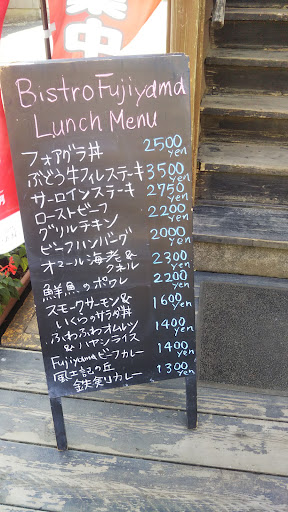 業中
Bistro Fujiyama
Lunch Menu
フォアグラ丼 2500 yen
ぶどう牛フィレステーキ 3500 yen
サーロインステーキ 2750 yen
ローストビーフ 2200 yen
グリルチキン 2000 yen
ビーフハンバーグ 2300 yen
オマール海老&クネル 2200 yen
鮮魚のポワレ
スモークサーモン& 1600 yen
いくらのサラダ丼
ふわふわオムレツ 1400 yen
&ハヤシライス
Fujiyamaビーフカレー 1400 yen
風土記の丘 1300 yen
鉄剣リカレー